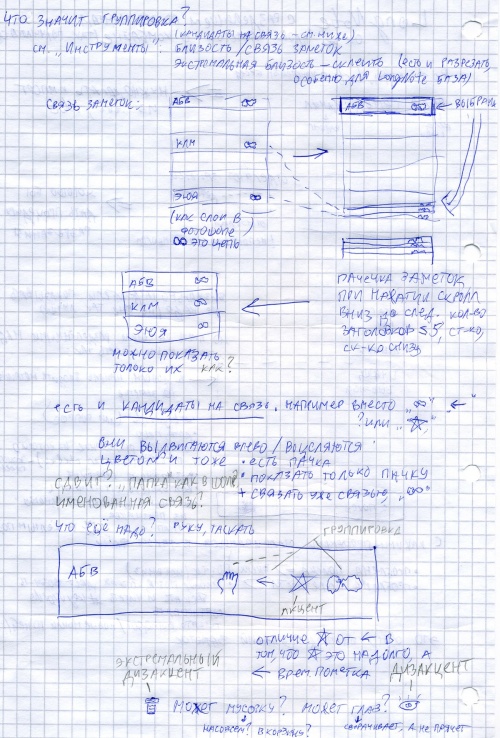 ЧТО ЗНАЧИТ ГРУППИРОВКА?
(КАНДИДАТЫ НА СВЯЗЬ - СМ. НИЖЕ)
СМ. „ИНСТРУМЕНТЫ": БЛИЗОСТЬ / СВЯЗЬ ЗАМЕТОК
ЭКСТРЕМАЛЬНАЯ БЛИЗОСТЬ - СКЛЕИТЬ (ЕСТЬ И РАЗРЕЗАТЬ,
ОСОБЕННО ДЛЯ БАЗА)
СВЯЗЬ ЗАМЕТОК:
АБВ
АБВ
ВЫБРАЛИ
КЛМ
ЭЮЯ
(КАК СЛОИ В
ФОТОШОПЕ)
∞ ЭТО ЦЕПЬ
АБВ
КЛМ
ЭЮЯ
ПАЧЕЧКА ЗАМЕТОК
ПРИ НАЖАТИИ СКРОЛЛ
ВНИЗ ДО СЛЕД. КОЛ-ВО
ЗАГОЛОВКОВ ≤5, СТ-КО,
СК-КО СНИЗУ
МОЖНО ПОКАЗАТЬ
ТОЛЬКО ИХ КАК?
ЕСТЬ И КАНДИДАТЫ НА СВЯЗЬ. НАПРИМЕР ВМЕСТО „∞" „←"
? ИЛИ „☆"
ОНИ ВЫДВИГАЮТСЯ / ВЫДЕЛЯЮТСЯ
ЦВЕТОМ И ТОЖЕ • ЕСТЬ ПАЧКА
• ПОКАЗАТЬ ТОЛЬКО ПАЧКУ
+ СВЯЗАТЬ УЖЕ СВЯЗЬЮ „∞"
СДВИГ? „ПАПКА" КАК В ШОПЕ
ИМЕНОВАННАЯ СВЯЗЬ?
ЧТО ЕЩЁ НАДО? РУКУ, ТАСКАТЬ
ГРУППИРОВКА
АБВ
←
АКЦЕНТ
ОТЛИЧИЕ ☆ ОТ ← В
ТОМ, ЧТО ☆ ЭТО НАДОЛГО, А
← ВРЕМ ПОМЕТКА
ЭКСТРЕМАЛЬНЫЙ
ДИЗАКЦЕНТ
ДИЗАКЦЕНТ
МОЖЕТ МУСОРКУ? МОЖЕТ ГЛАЗ?
НАСОВСЕМ? В КОРЗИНУ?
СВОРАЧИВАЕТ, А НЕ ПРЯЧЕТ